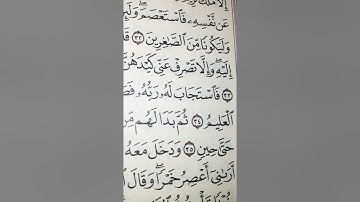 إِلَّا مَلَكٌ
عَن نَّفْسِهِۦ فَٱسْتَعْصَمَ ۖ وَلَئِ
وَلَيَكُونًا مِّنَ ٱلصَّٰغِرِينَ ٣٢ قَا
إِلَيْهِ ۖ وَإِلَّا تَصْرِفْ عَنِّى كَيْدَهُنَّ
٣٣ فَٱسْتَجَابَ لَهُۥ رَبُّهُۥ فَصَ
ٱلْعَلِيمُ ٣٤ ثُمَّ بَدَا لَهُم مِّن
حَتَّىٰ حِينٍ ٣٥ وَدَخَلَ مَعَهُ
أَرَىٰنِىٓ أَعْصِرُ خَمْرًا ۖ وَقَالَ ٱ